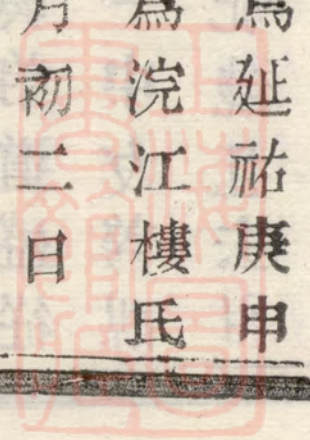 爲延祐庚申
爲浣江樓氏
月初二日